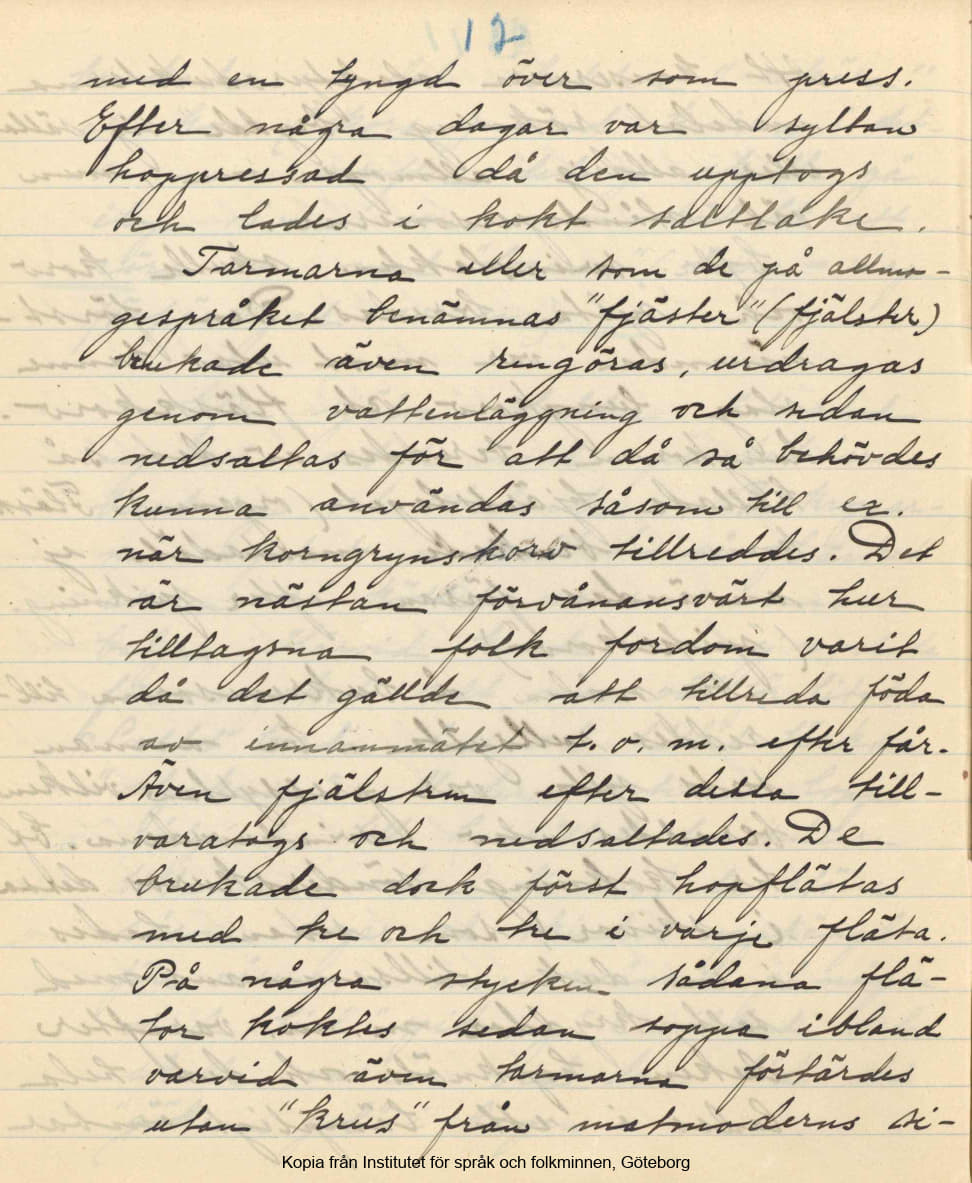 12
med en tyngd över som press.
Efter några dagar var syltan
hoppressad då den upptogs
och lades i kokt saltlake.
Tarmarna eller som de på allmo-
gespråket benämnas "fjäster" (fjälster)
brukade även rengöras, urdragas
genom vattenläggning och sedan
nedsaltas för att då så behövdes
kunna användas såsom till ex.
när korngrynskorv tillreddes. Det
är nästan förvånansvärt hur
tilltagsna folk fordom varit
då det gällde att tillreda föda
av innanmätet t. o. m. efter får.
Även fjälstren efter dessa till-
varatogs och nedsaltades. De
brukade dock först hopflätas
med tre och tre i varje fläta.
På några stycken sådana flä-
tor koktes sedan soppa ibland
varvid även tarmarna förtärdes
utan "krus" från matmoderns si-
Kopia från Institutet för språk och folkminnen, Göteborg